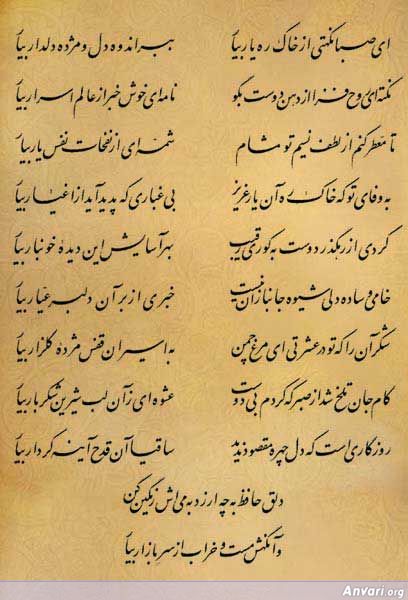 ای صبا نکهتی از خاک ره یار بیار ببر اندوه دل و مژده دلدار بیار
نکته‌ای روح فزا از دهن دوست بگو نامه‌ای خوش خبر از عالم اسرار بیار
تا معطر کنم از لطف نسیم تو مشام شمه‌ای از نفحات نفس یار بیار
به وفای تو که خاک ره آن یار عزیز بی غباری که پدید آید از اغیار بیار
گردی از رهگذر دوست به کوری رقیب بهر آسایش این دیده خونبار بیار
خامی و ساده دلی شیوه جانبازان نیست خبری از بر آن دلبر عیار بیار
شکر آن را که تو در عشرتی ای مرغ چمن به اسیران قفس مژده گلزار بیار
کام جان تلخ شد از صبر که کردم بی دوست عشوه‌ای زان لب شیرین شکربار بیار
روزگاری است که دل چهره مقصود ندید ساقیا آن قدح آینه کردار بیار
دلق حافظ به چه ارزد به می‌اش رنگین کن
وآنگهش مست و خراب از سر بازار بیار
Anvari.org